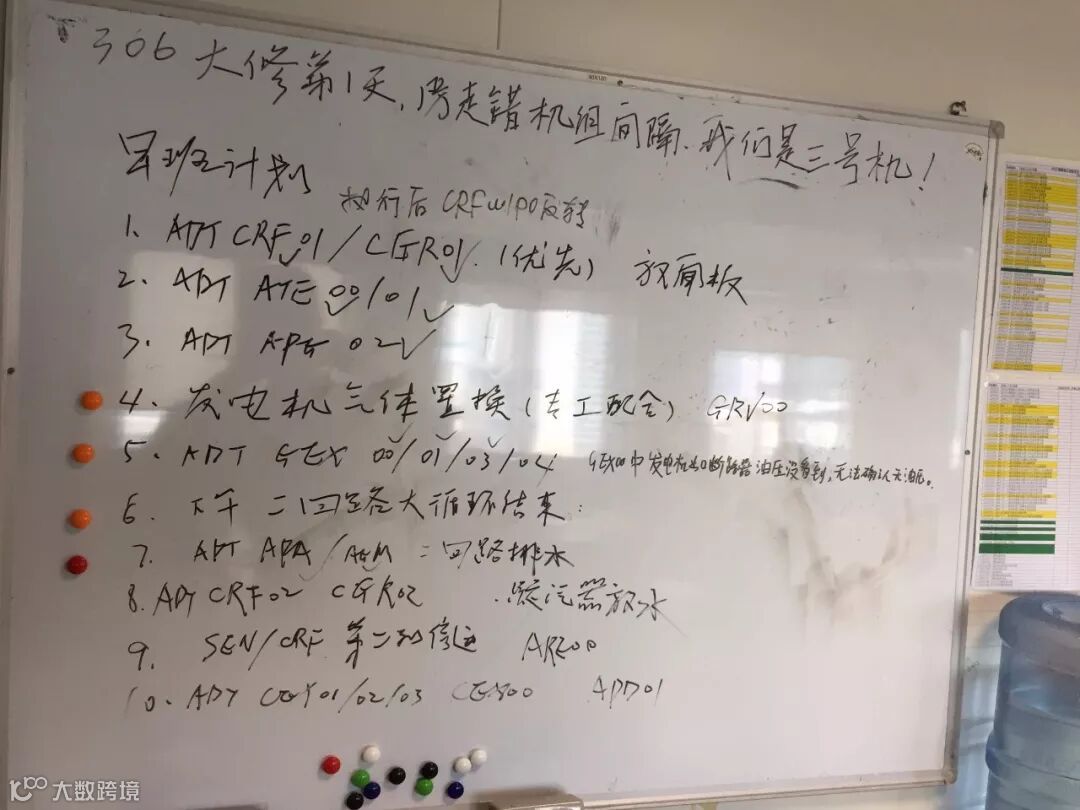 306大修第1天,防走错机组间隔、我们是三号机!
早班计划
执行后CRF01PO反转
1. ADT CRF01/CGR01.(优先) 放闸板
2. ADT ATE 00/01
3. ADT APG 02
4. 发电机气体置换(专工配合) GRV00
5. ADT GEX 00/01/03/04 GEX00中发电机出口断路器油压没看到,无法确认无油压。
6. 下午 二回路大循环结束
7. ADT APA/AGM 二回路排水
8. ADT CRF02 CGR02 凝汽器放水
9. SEN/CRF 第二列 ARE00
10. ADT CEX01/02/03 CEX00 APD01
大数跨境